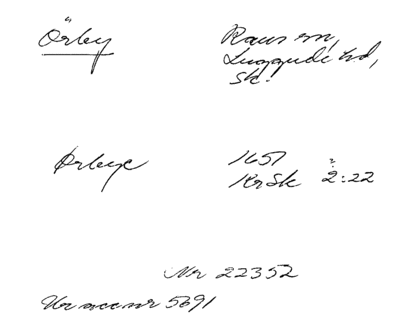 Örby Raus sn,
Luggude hd,
Sk.
Ørbye 1657
KrSk 2:22
Nr 22352
Ur acc nr 5691